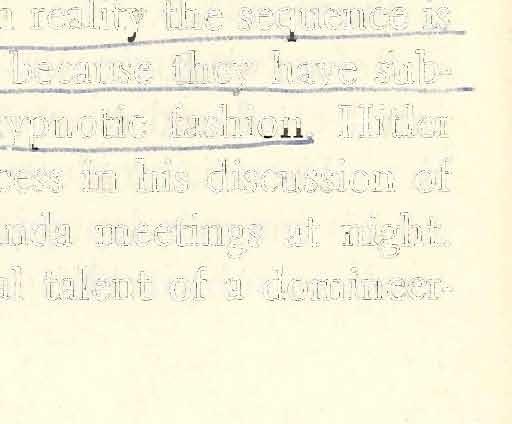 n reality the sequence is
because they have sub-
ypnotic fashion. Hitler
cess in his discussion of
nda meetings at night.
al talent of a domineer-